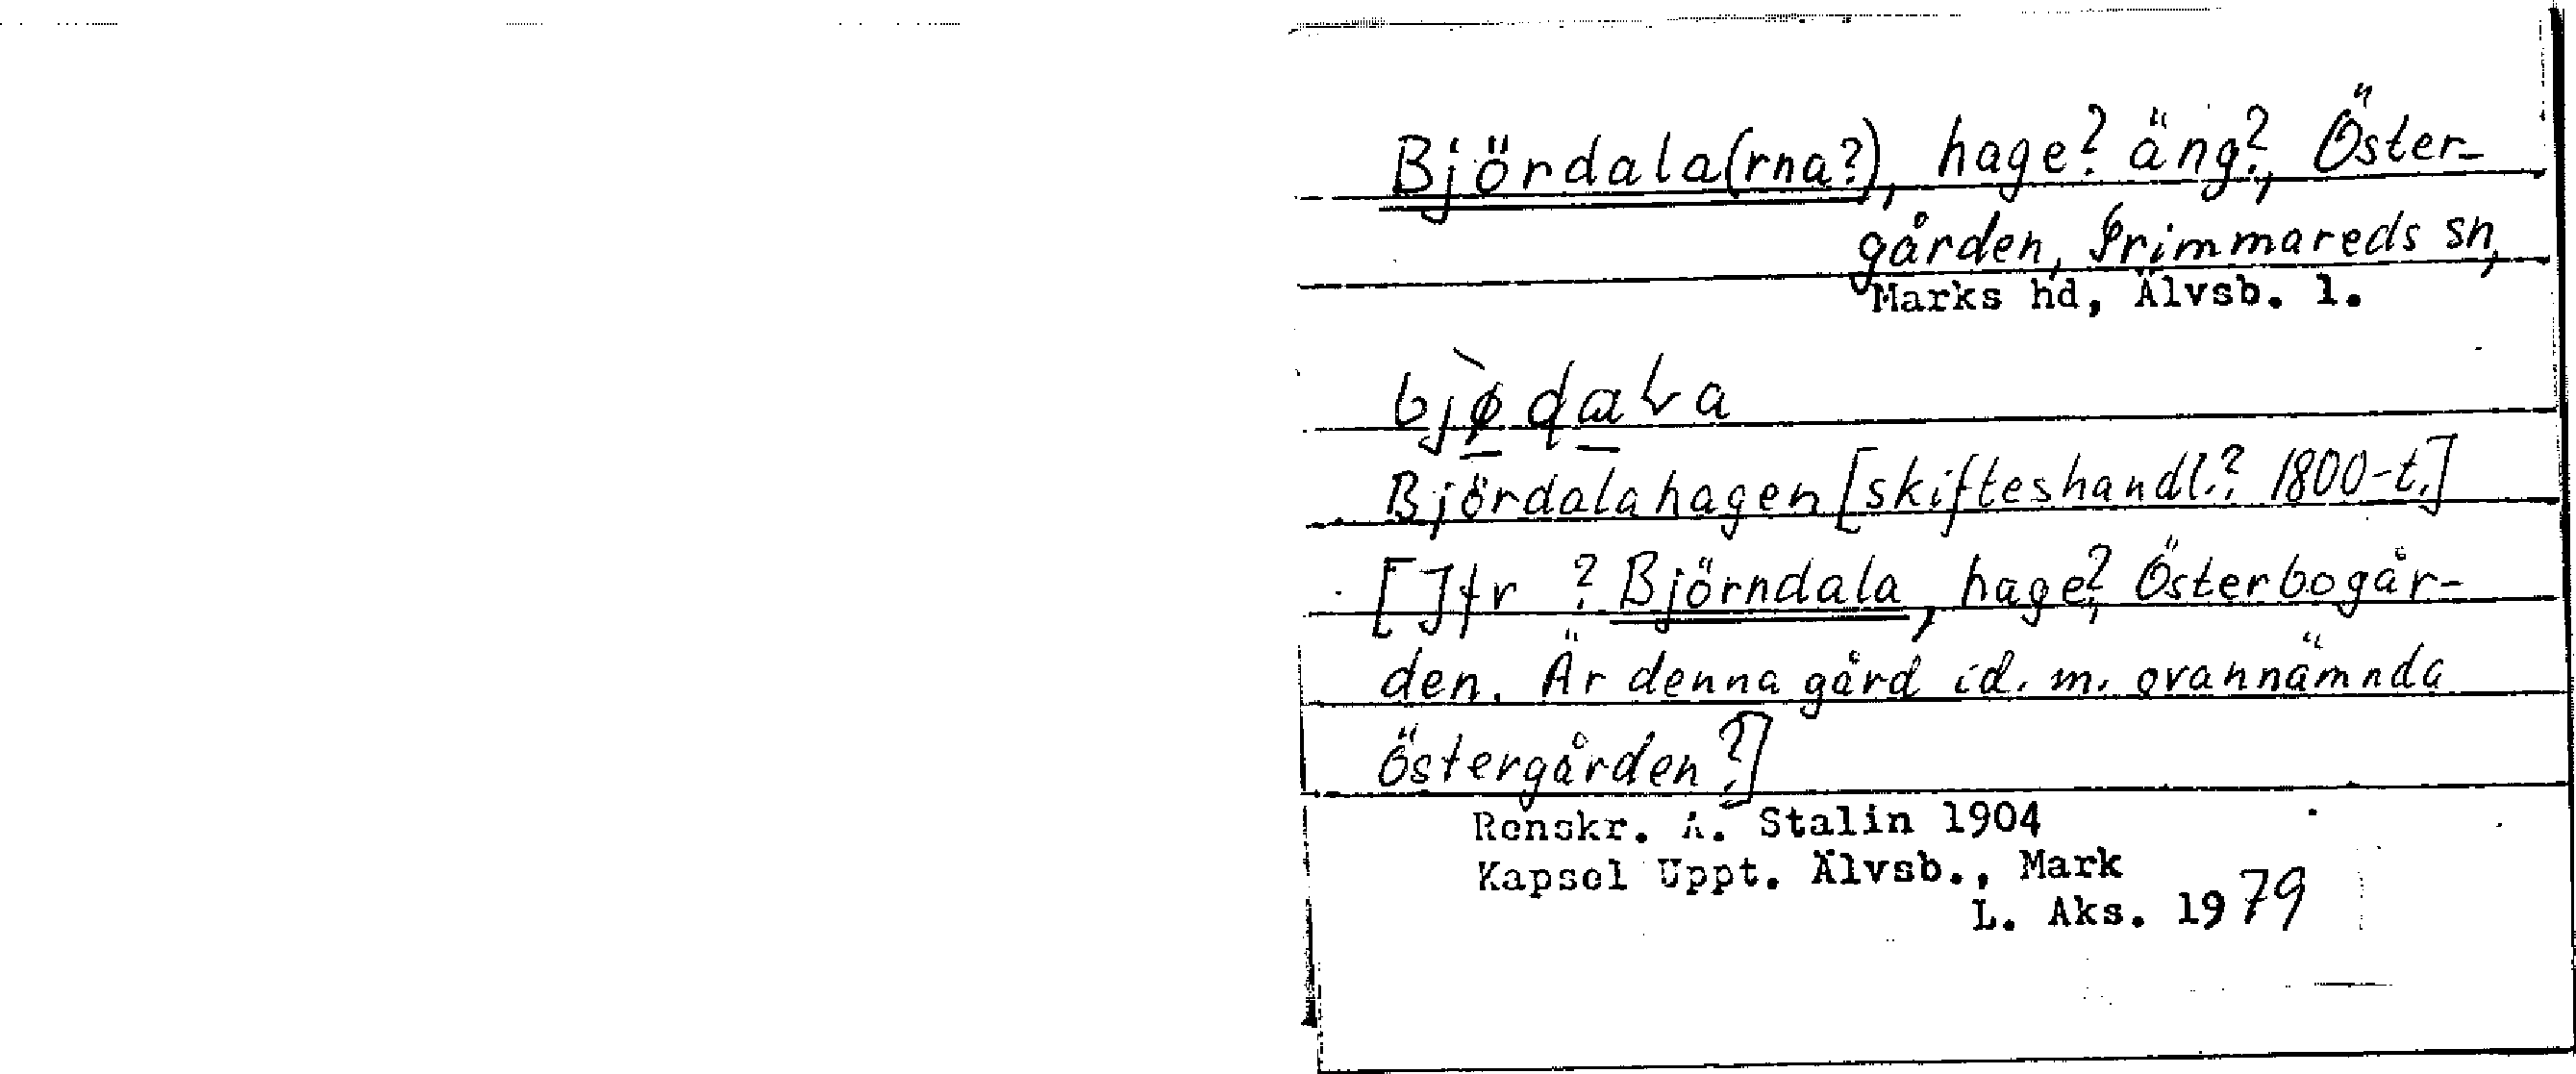 Björdala(rna?), hage? äng?, Öster-
gården, Grimmareds sn,
Marks hd, Älvsb. l.
Björdalahagen [skifteshandl.? 1800-t.]
[Jfr ? Björndala, hage?, Österbogår-
den. Är denna gård id. m. ovannämnda
Östergården?]
Renskr. A. Stalin 1904
Kapsel Uppt. Älvsb., Mark
L. Aks. 1979